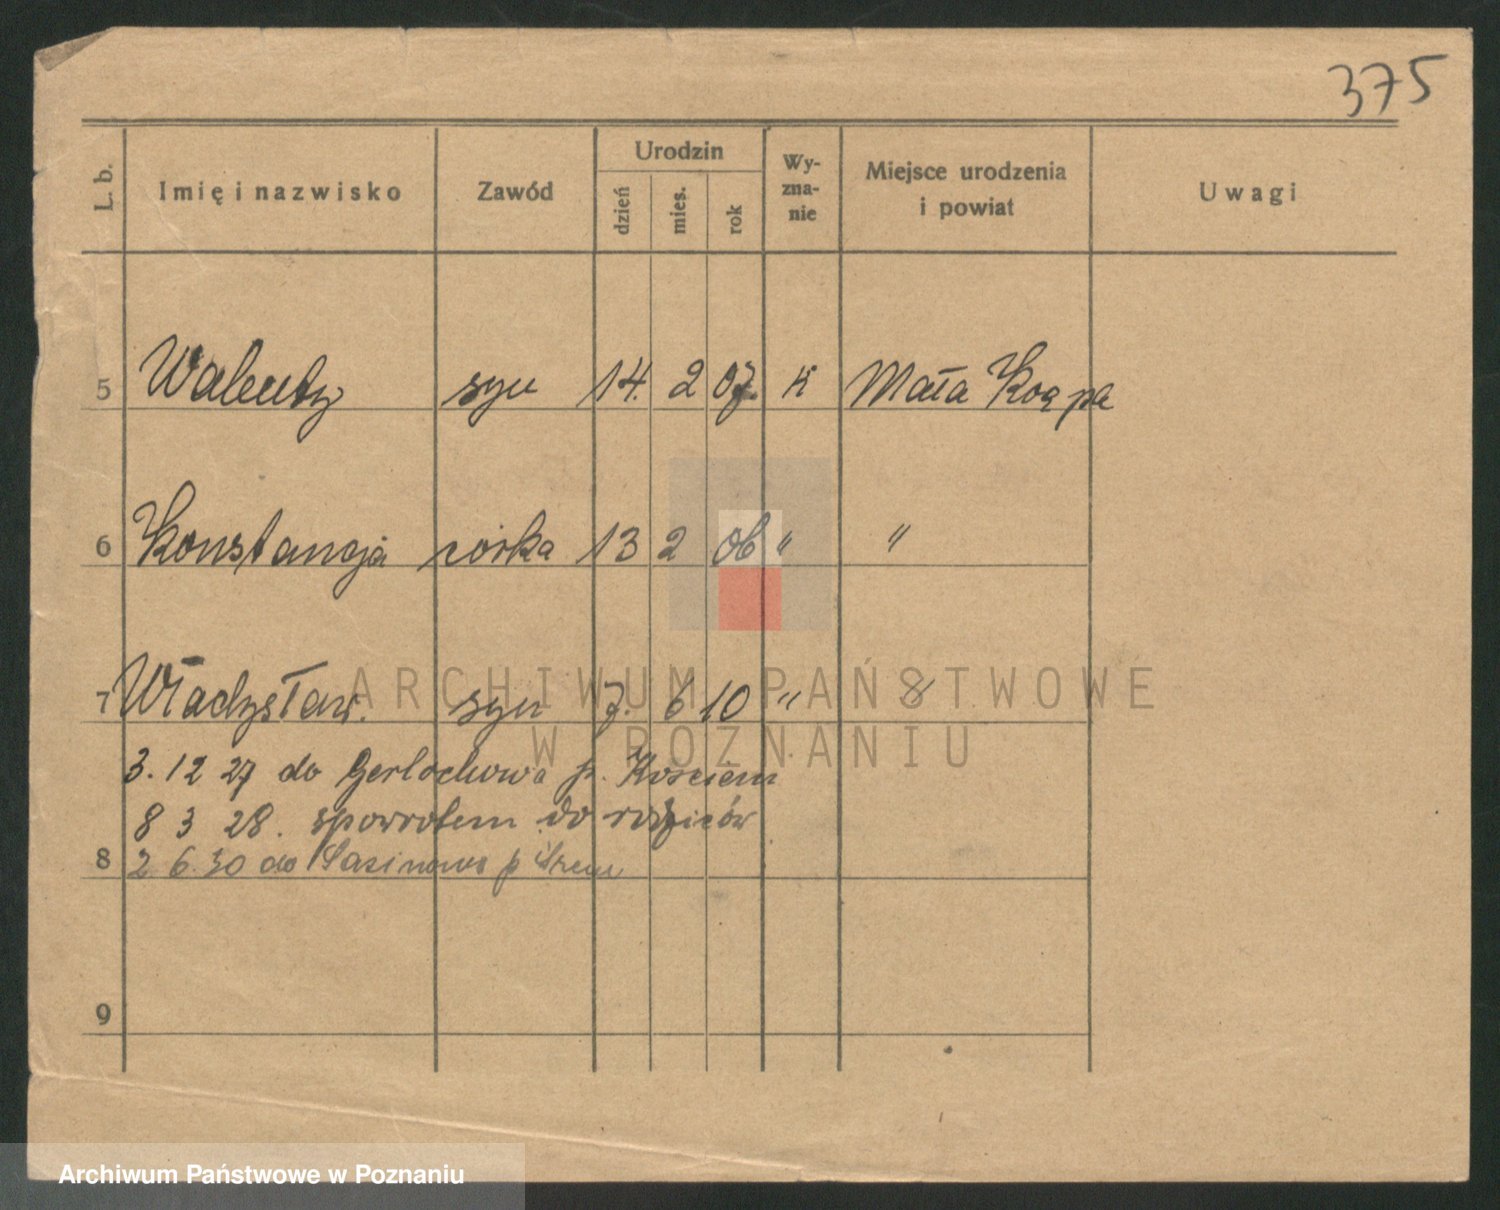 375
L. b. Imię i nazwisko Zawód Urodzin dzień mies. rok Wy-zna-nie Miejsce urodzenia i powiat Uwagi
5 Walenty syn 14. 2 07. K Mała
6 Konstancja córka 13 2 06 " "
7 Władysław. syn 7. 6 10 " "
3. 12 27 do Gerlachowa p. Kościem
8 3 28. spowrotem do rodziców
8 2 6.30 do p Śrem
9
ARCHIWUM PAŃSTWOWE
W POZNANIU
Archiwum Państwowe w Poznaniu